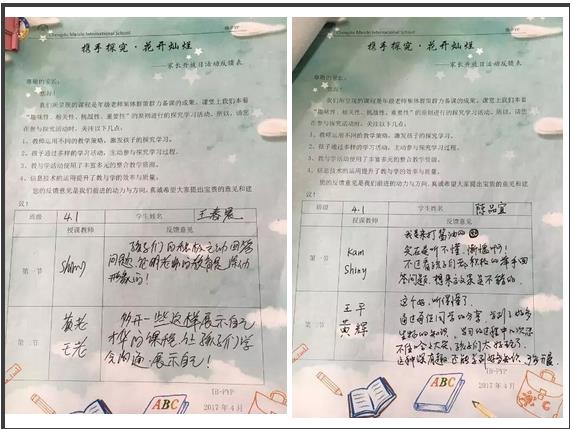 Meishi International School
IB-PYP
携手探究·花开灿烂
——家长开放日活动反馈表
尊敬的家长:
您好!
我们所呈现的课程是年级老师集体群策群力备课的成果。课堂上我们本着
"趣味性、相关性、挑战性、重要性"的原则进行的探究学习活动。所以,请您
在参与探究活动时,关注以下几点:
1、教师运用不同的教学策略,激发孩子的探究学习。
2、孩子通过多样的学习活动,主动参与探究学习过程。
3、教与学活动使用了丰富多元的整合教学资源。
4、信息技术的运用提升了教与学的效率与质量。
您的反馈意见是我们前进的动力与方向,真诚希望大家提出宝贵的意见和建
议!
班级 4.1 学生姓名 王春
授课教师 反馈意见
第一节 Shiny
孩子们积极主动回答
问题,说明老师的教育是生动
形象的!
第二节 黄老 王老
多开一些这样展示自己
才华的课程,让孩子们学
会沟通,展示自己!
IB-PYP
2017年4月
Meishi International School
IB-PYP
携手探究·花开灿烂
——家长开放日活动反馈表
尊敬的家长:
您好!
我们所呈现的课程是年级老师集体群策群力备课的成果。课堂上我们本着
"趣味性、相关性、挑战性、重要性"的原则进行的探究学习活动。所以,请您
在参与探究活动时,关注以下几点:
1、教师运用不同的教学策略,激发孩子的探究学习。
2、孩子通过多样的学习活动,主动参与探究学习过程。
3、教与学活动使用了丰富多元的整合教学资源。
4、信息技术的运用提升了教与学的效率与质量。
您的反馈意见是我们前进的动力与方向,真诚希望大家提出宝贵的意见和建
议!
班级 4.1 学生姓名 陈品宜
授课教师 反馈意见
第一节 Kam Shiny
我是来打酱油的
实在是听不懂,惭愧啊!
不过看孩子们轻松的举手回
答问题,想来应该是不错的.
第二节 王平 黄辉
这个好,听得懂了.
通过每位同学的分享,学到了好多
生物的知识,
孩子们太好玩了.
IB-PYP
2017年4月
ABC
ABC